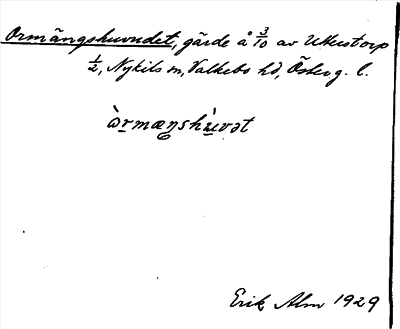 Ormängshuvudet, gärde å 3/10 av Utterstorp
1/2, Nykils sn, Valkebo hd, Österg. l.
ὼrmæŋshùvət
Erik Alm 1929